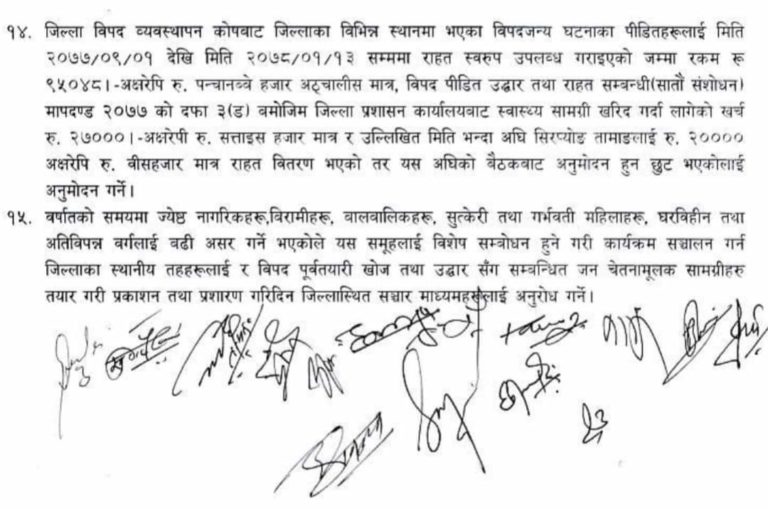 १४. जिल्ला विपद व्यवस्थापन कोषबाट जिल्लाका विभिन्न स्थानमा भएका विपदजन्य घटनाका पीडितहरूलाई मिति
२०७७/०९/०१ देखि मिति २०७८/०१/१३ सम्ममा राहत स्वरुप उपलब्ध गराइएको जम्मा रकम रू
९५०४८।-अक्षरेपि रु. पन्चानब्बे हजार अठ्चालीस मात्र, विपद पीडित उद्धार तथा राहत सम्बन्धी(सातौं संशोधन)
मापदण्ड २०७७ को दफा ३(ड) बमोजिम जिल्ला प्रशासन कार्यालयबाट स्वास्थ्य सामग्री खरिद गर्दा लागेको खर्च
रु. २७०००।-अक्षरेपी रु. सत्ताइस हजार मात्र र उल्लिखित मिति भन्दा अघि सिरप्योङ तामाङलाई रु. २००००
अक्षरेपि रु. वीसहजार मात्र राहत वितरण भएको तर यस अघिको बैठकबाट अनुमोदन हुन छुट भएकोलाई
अनुमोदन गर्ने।
१५. वर्षातको समयमा ज्येष्ठ नागरिकहरू,विरामीहरू, बालबालिकहरू, सुत्केरी तथा गर्भवती महिलाहरू, घरविहीन तथा
अतिविपन्न वर्गलाई बढी असर गर्ने भएकोले यस समूहलाई विशेष सम्बोधन हुने गरी कार्यक्रम सञ्चालन गर्न
जिल्लाका स्थानीय तहहरूलाई र विपद पूर्वतयारी खोज तथा उद्धार सँग सम्बन्धित जन चेतनामूलक सामग्रीहरु
तयार गरी प्रकाशन तथा प्रशारण गरिदिन जिल्लास्थित सञ्चार माध्यमहरूलाई अनुरोध गर्ने।